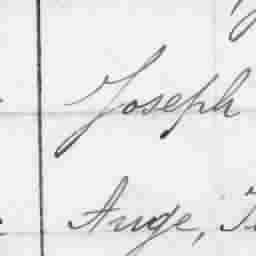 Joseph
Auge,